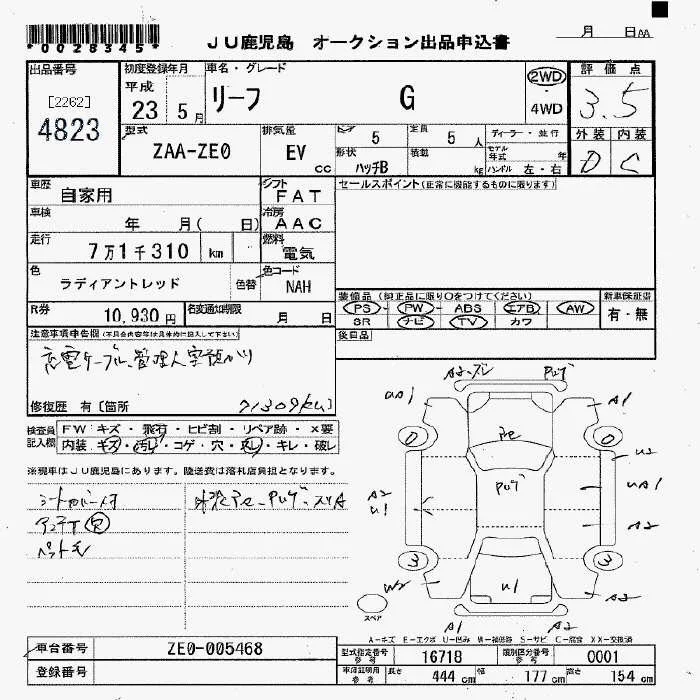 *0028345*
JU鹿児島 オークション出品申込書
月 日 AA
出品番号
[2262]
4823
初度登録年月
平成
23 5月
車名・グレード
リーフ G
2WD
・
4WD
評価点
3.5
型式
ZAA-ZE0
排気量
EV
cc
ドア 5
定員 5人
ディーラー・並行
モデル年式 年
形状 ハッチB
積載 kg
ハンドル 左・右
外装 内装
D C
車歴
自家用
シフト
FAT
セールスポイント(正常に機能するものに限ります)
車検
年 月( 日)
冷房
AAC
走行
7万1千310 km
燃料
電気
色
ラディアントレッド
色替
色コード
NAH
R券
10,930円
名変通知期限
月 日
装備品(純正品に限り○をつけてください)
PS・PW・ABS エアB AW
SR ナビ・TV・カワ
新車保証書
有・無
注意事項申告欄(不具合内容等は具体的に記入して下さい)
後日品
充電ケーブル、管理人室預かり
修復歴 有[箇所
71309km]
検査員記入欄
FW キズ・飛石・ヒビ割・リペア跡・X要
内装 キズ・汚れ・コゲ・穴・・キレ・破レ
※現車はJU鹿児島にあります。陸送費は落札店負担となります。
シートカバー付
ペット毛
A1
A1
U2
UA1
A2
A2
U1
A2
W2
U1
A2
A1
A2
0
0
3
3
スペア
A-キズ E-エクボ U-凹み W-補修跡 S-サビ C-腐食 XX-交換済
車台番号
ZE0-005468
型式指定番号
参考
16718
類別区分番号
参考
0001
登録番号
車庫証明用
参考
長さ 444cm
幅 177cm
高さ 154cm